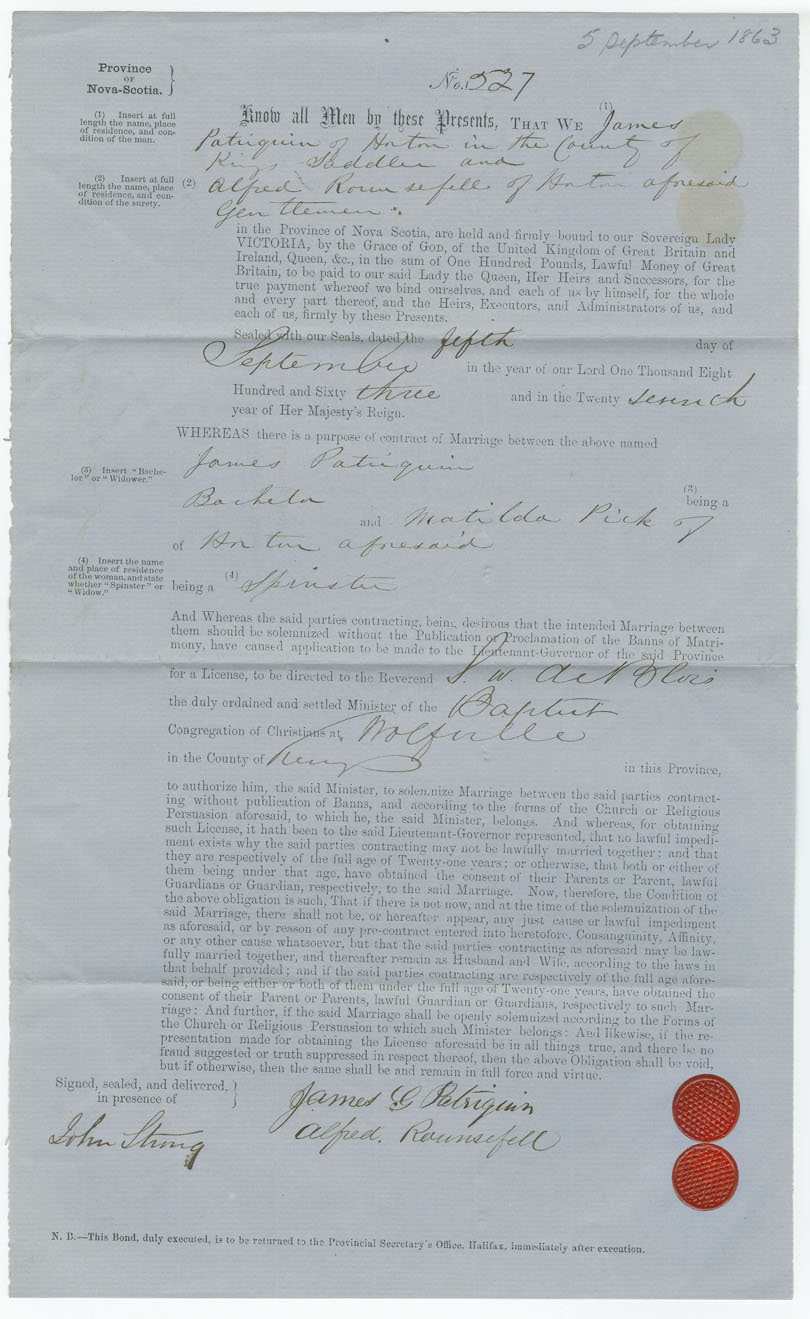 5 September 1863
Province
OF
Nova-Scotia.
No. 527
(1) Insert at full
length the name, place
of residence, and con-
dition of the man.
Know all Men by these Presents, THAT WE (1) James
Patriquin of Horton in the County of
Kings Saddler and
(2) Insert at full
length the name, place
of residence, and con-
dition of the surety.
(2) Alfred Rounsefell of Horton aforesaid
Gentlemen
in the Province of Nova Scotia, are held and firmly bound to our Sovereign Lady
VICTORIA, by the Grace of GOD, of the United Kingdom of Great Britain and
Ireland, Queen, &c., in the sum of One Hundred Pounds, Lawful Money of Great
Britain, to be paid to our said Lady the Queen, Her Heirs and Successors, for the
true payment whereof we bind ourselves, and each of us by himself, for the whole
and every part thereof, and the Heirs, Executors, and Administrators of us, and
each of us, firmly by these Presents.
Sealed with our Seals, dated the fifth day of
September in the year of our Lord One Thousand Eight
Hundred and Sixty three and in the Twenty seventh
year of Her Majesty's Reign.
WHEREAS there is a purpose of contract of Marriage between the above named
James Patriquin
(3) Insert "Bache-
lor" or "Widower."
Bachelor (3) being a
and Matilda Pick of
of Horton aforesaid
(4) Insert the name
and place of residence
of the woman, and state
whether "Spinster" or
"Widow."
being a (4) Spinster
And Whereas the said parties contracting, being desirous that the intended Marriage between
them should be solemnized without the Publication or Proclamation of the Banns of Matri-
mony, have caused application to be made to the Lieutenant-Governor of the said Province
for a License, to be directed to the Reverend S. W. DeBlois
the duly ordained and settled Minister of the Baptist
Congregation of Christians at Wolfville
in the County of Kings in this Province,
to authorize him, the said Minister, to solemnize Marriage between the said parties contract-
ing without publication of Banns, and according to the forms of the Church or Religious
Persuasion aforesaid, to which he, the said Minister, belongs. And whereas, for obtaining
such License, it hath been to the said Lieutenant-Governor represented, that no lawful impedi-
ment exists why the said parties contracting may not be lawfully married together; and that
they are respectively of the full age of Twenty-one years; or otherwise, that both or either of
them being under that age, have obtained the consent of their Parents or Parent, lawful
Guardians or Guardian, respectively, to the said Marriage. Now, therefore, the Condition of
the above obligation is such, That if there is not now, and at the time of the solemnization of the
said Marriage, there shall not be, or hereafter appear, any just cause or lawful impediment
as aforesaid, or by reason of any pre-contract entered into heretofore, Consanguinity, Affinity,
or any other cause whatsoever, but that the said parties contracting as aforesaid may be law-
fully married together, and thereafter remain as Husband and Wife, according to the laws in
that behalf provided; and if the said parties contracting are respectively of the full age afore-
said, or being either or both of them under the full age of Twenty-one years, have obtained the
consent of their Parent or Parents, lawful Guardian or Guardians, respectively to such Mar-
riage: And further, if the said Marriage shall be openly solemnized according to the Forms of
the Church or Religious Persuasion to which such Minister belongs: And likewise, if the re-
presentation made for obtaining the License aforesaid be in all things true, and there be no
fraud suggested or truth suppressed in respect thereof, then the above Obligation shall be void,
but if otherwise, then the same shall be and remain in full force and virtue.
Signed, sealed, and delivered,
in presence of
James G Patriquin
John Strong
Alfred. Rounsefell
N. B.—This Bond, duly executed, is to be returned to the Provincial Secretary's Office, Halifax, immediately after execution.